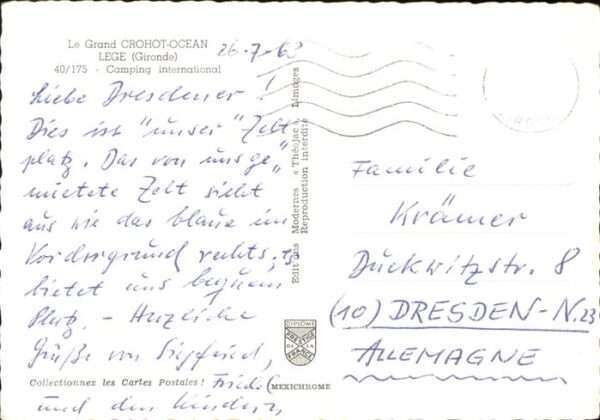 Le Grand CROHOT-OCEAN
LEGE (Gironde)
40/175 - Camping international
26-7-63
Liebe Dresdener!
Dies ist "unser" Zelt
platz. Das von uns ge
mietete Zelt sieht
aus wie das blaue im
Vordergrund rechts. Es
bietet uns bequem
Platz. - Herzliche
Grüße von Siegfried,
Friedel
und den Kindern,
Collectionnez les Cartes Postales !
MEXICHROME
Editions Modernes « Théojac », Limoges
Reproduction interdite
DIPLOME
PRESTIGE
DE LA
FRANCE
Familie
Krämer
Duckwitzstr. 8
(10) DRESDEN-N.23
ALLEMAGNE